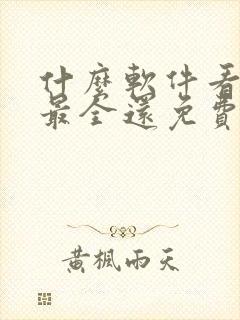 什麼軟件看
最全還免費
黃楓雨天